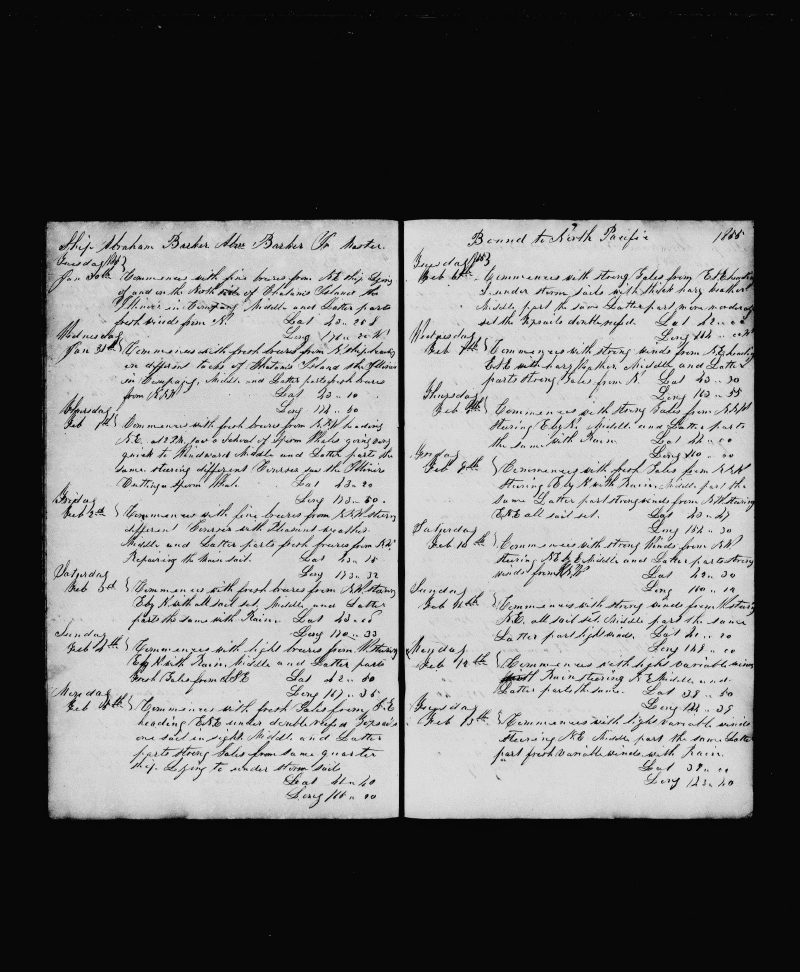 Ship Abraham Barker Abm Barker Jr Master.
Tuesday
Jan 30th Commences with fine breeses from N.E. ship lying
of and on the North side of Chatam Island the
Illinois in Company Middle and Latter parts
fresh winds from N. Lat 43 " 25 S
Wednesday Long 176 " 20 W
Jan 31st Commences with fresh breeses from N ship heading
on different tacks of Chatam Island the Illinois
in Company, Middle and Latter parts fresh breeses
from NNW Lat 43 " 10
Thursday Long 174 " 50
Feb 1st Commences with fresh breeses from NNW heading
N.E. at 2 P.M. saw a School of Sperm Whales going very
quick to Windward Middle and Latter parts the
same stering different Courses saw the Illinois
Cutting a Sperm Whale. Lat 43 " 20
Friday Long 173 " 50
Feb 2nd Commences with fine breeses from NNW stering
different Courses with Pleasant weather
Middle and Latter parts fresh breeses from NW
Repairing the Main sail. Lat 43 " 15
Saturday Long 173 " 32
Feb 3d Commences with fresh breeses from NW stering
E by N with all sail set Middle and Latter
parts the same with Rain. Lat 43 " 00
Sunday Long 170 " 33
Feb 4th Commences with light breeses from W stering
E by N with Rain Middle and Latter parts
fresh Gales from SSE Lat 42 " 50
Monday Long 167 " 35
Feb 5th Commences with fresh Gales from S.E
heading ENE under double reefed Topsails
one sail in sight Middle and Latter
parts strong Gales from same quarter
ship Lying to under storm sails
Lat 41 " 40
Long 166 " 00
Bound to North Pacific 1855
Tuesday
Feb 6th Commences with strong Gales from ESE heading
under storm sails with thick hazy weather
Middle part the same Latter part more moderate
set the Topsails double reefed. Lat 42 " 00
Wednesday Long 164 " 00 W
Feb 7th Commences with strong winds from N.E. heading
ESE with hazy weather Middle and Latter
parts strong Gales from N. Lat 43 " 30
Thursday Long 163 " 55
Feb 8th Commences with strong Gales from NNW
Stering E by N. Middle and Latter parts
the same with Rain. Lat 44 " 00
Friday Long 160 " 00
Feb 9th Commences with fresh Gales from NNW
Stering E by N with Rain Middle part the
same Latter part strong winds from NW stering
ENE all sail set. Lat 43 " 27
Saturday Long 154 " 30
Feb 10th Commences with strong Winds from NW
stering N.E. by E Middle and Latter parts strong
winds from NNW Lat 42 " 30
Sunday Long 150 " 12
Feb 11th Commences with strong winds from W stering
N.E. all sail set. Middle part the same
Latter part light winds. Lat 40 " 20
Monday Long 145 " 00
Feb 12th Commences with light variable winds
with Rain stering N.E. Middle and
Latter parts the same. Lat 39 " 50
Tuesday Long 144 " 35
Feb 13th Commences with light variable winds
stering N.E. Middle part the same Latter
part fresh variable winds with Rain.
Lat 39 " 00
Long 143 " 40